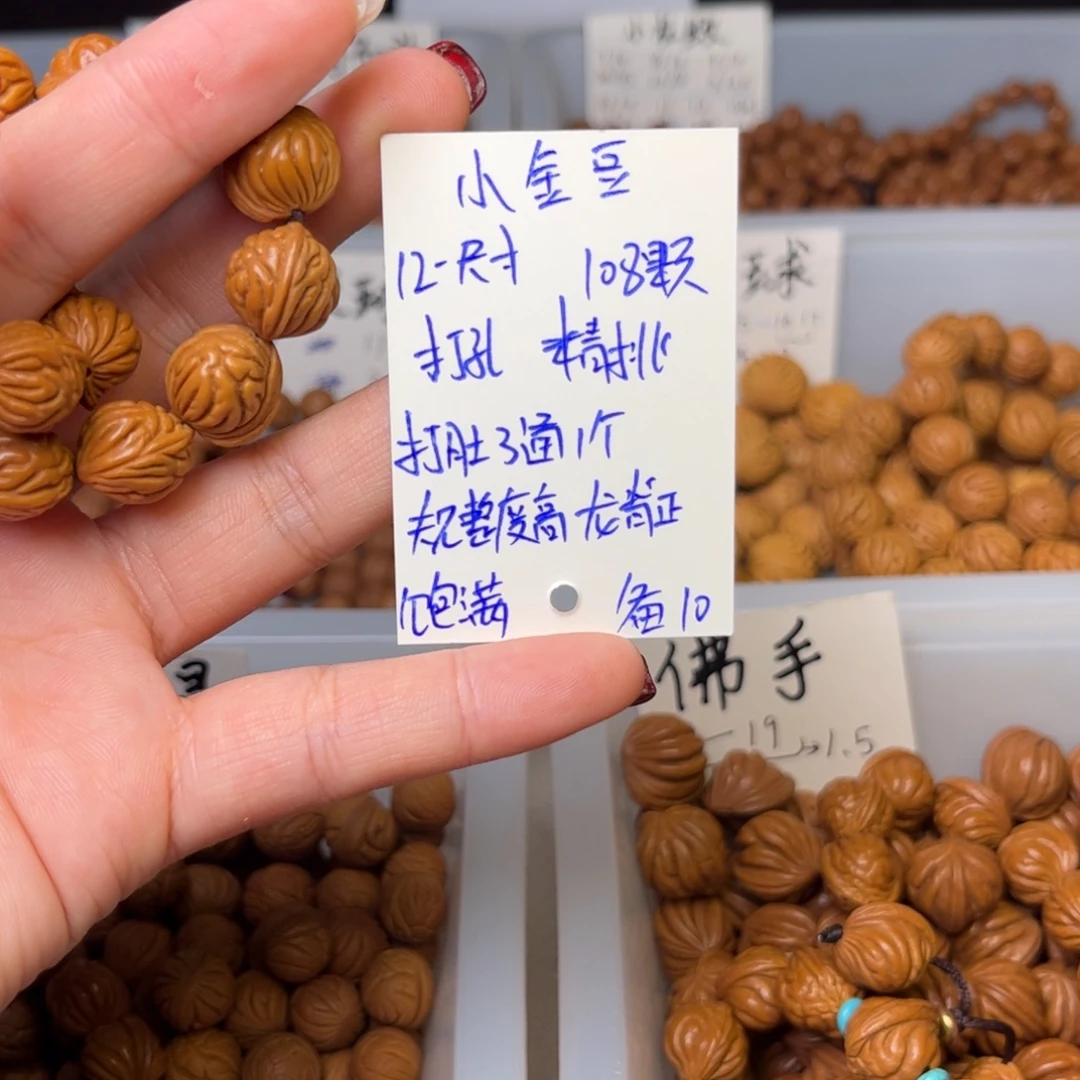 小金豆
12-尺寸 108颗
打孔 精排
打肚3通1个
规整度高 龙脊正
饱满 备10
佛手
-19→1.5
球